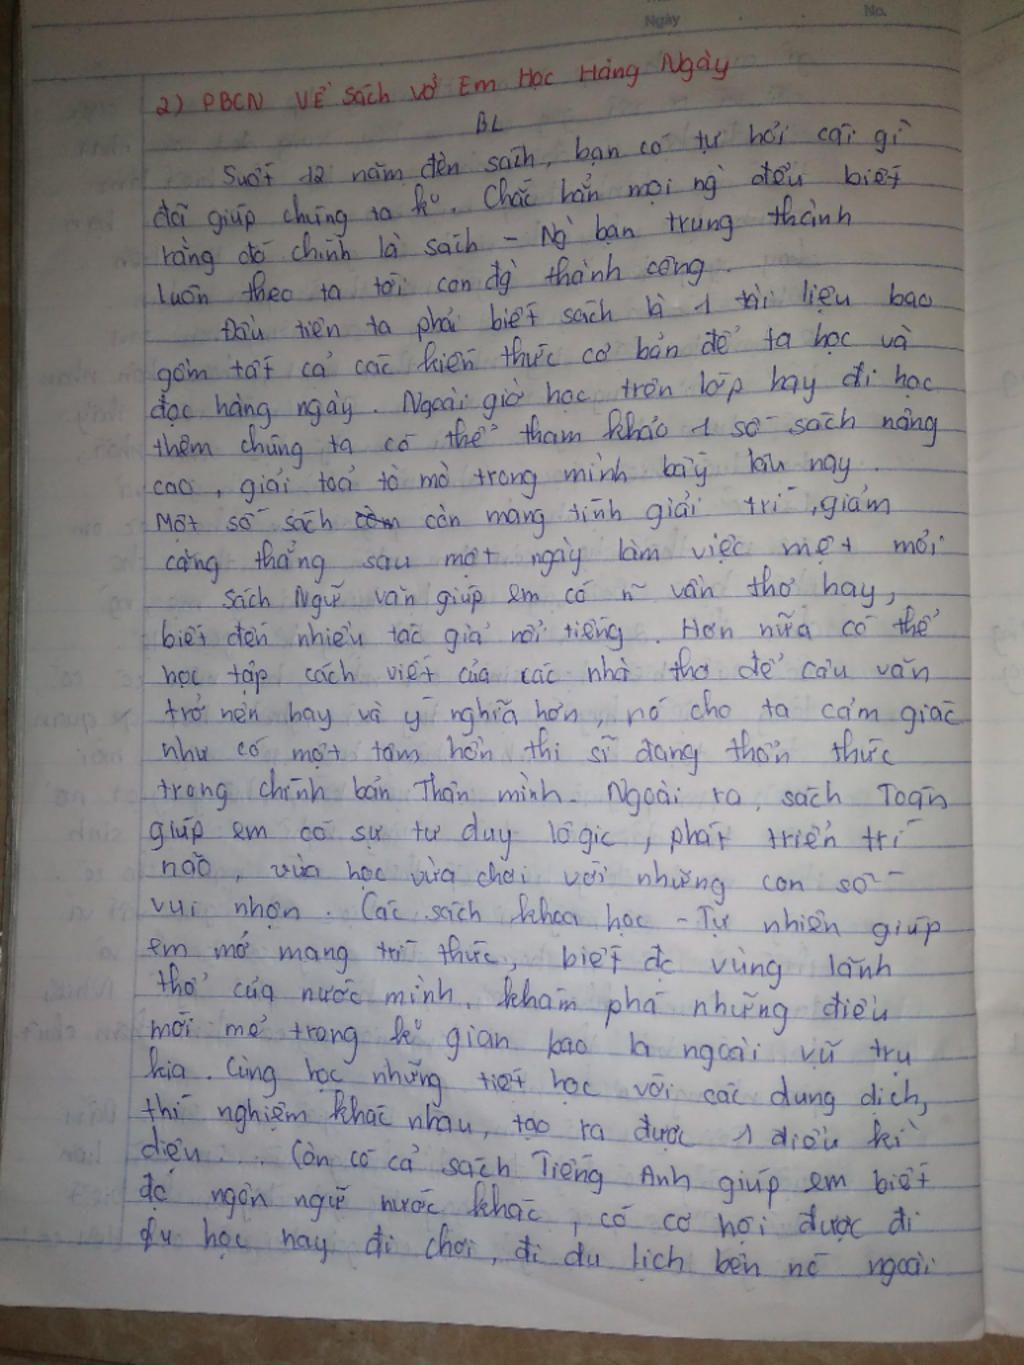 Ngày
No.
2) PBCN VỀ Sách vở Em Học Hàng Ngày
BL
Suốt 12 năm đèn sách, bạn có tự hỏi cái gì
đã giúp chúng ta k°. Chắc hẳn mọi ng` đều biết
rằng đó chính là sách - Ng` bạn trung thành
luôn theo ta tới con đg` thành công.
Đầu tiên ta phải biết sách là 1 tài liệu bao
gồm tất cả các kiến thức cơ bản để ta học và
đọc hàng ngày. Ngoài giờ học trên lớp hay đi học
thêm chúng ta có thể tham khảo 1 số sách nâng
cao, giải toả tò mò trong mình bấy lâu nay.
Một số sách còn mang tính giải trí, giảm
căng thẳng sau một ngày làm việc mệt mỏi
Sách Ngữ văn giúp em có n~ vần thơ hay,
biết đến nhiều tác giả nổi tiếng. Hơn nữa có thể
học tập cách viết của các nhà thơ để câu văn
trở nên hay và ý nghĩa hơn, nó cho ta cảm giác
như có một tâm hồn thi sĩ đang thổn thức
trong chính bản Thân mình. Ngoài ra, sách Toán
giúp em có sự tư duy lôgic, phát triển trí
não, vừa học vừa chơi với những con số
vui nhộn. Các sách khoa học - Tự nhiên giúp
em mở mang tri thức, biết đc vùng lãnh
thổ của nước mình, khám phá những điều
mới mẻ trong k° gian bao la ngoài vũ trụ
kia. Cùng học những tiết học với các dung dịch,
thí nghiệm khác nhau, tạo ra được 1 điều kì
diệu... Còn có cả sách Tiếng Anh giúp em biết
đc ngôn ngữ nước khác, có cơ hội được đi
du học hay đi chơi, đi du lịch bên nc' ngoài